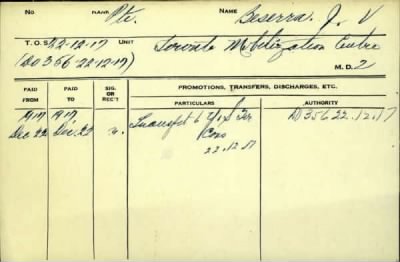 No RANK Pte. NAME Beserra. J. V
T.O.S. 22-12-17 UNIT Toronto Mobilization Centre
(DO 356-22-12-17) M.D. 2
PAID FROM PAID TO SIG. OR REC'T PROMOTIONS, TRANSFERS, DISCHARGES, ETC.
PARTICULARS AUTHORITY
1917 1917
Dec 22 Dec. 22 n. Transfet to DO 356 22.12.17
22.12.17